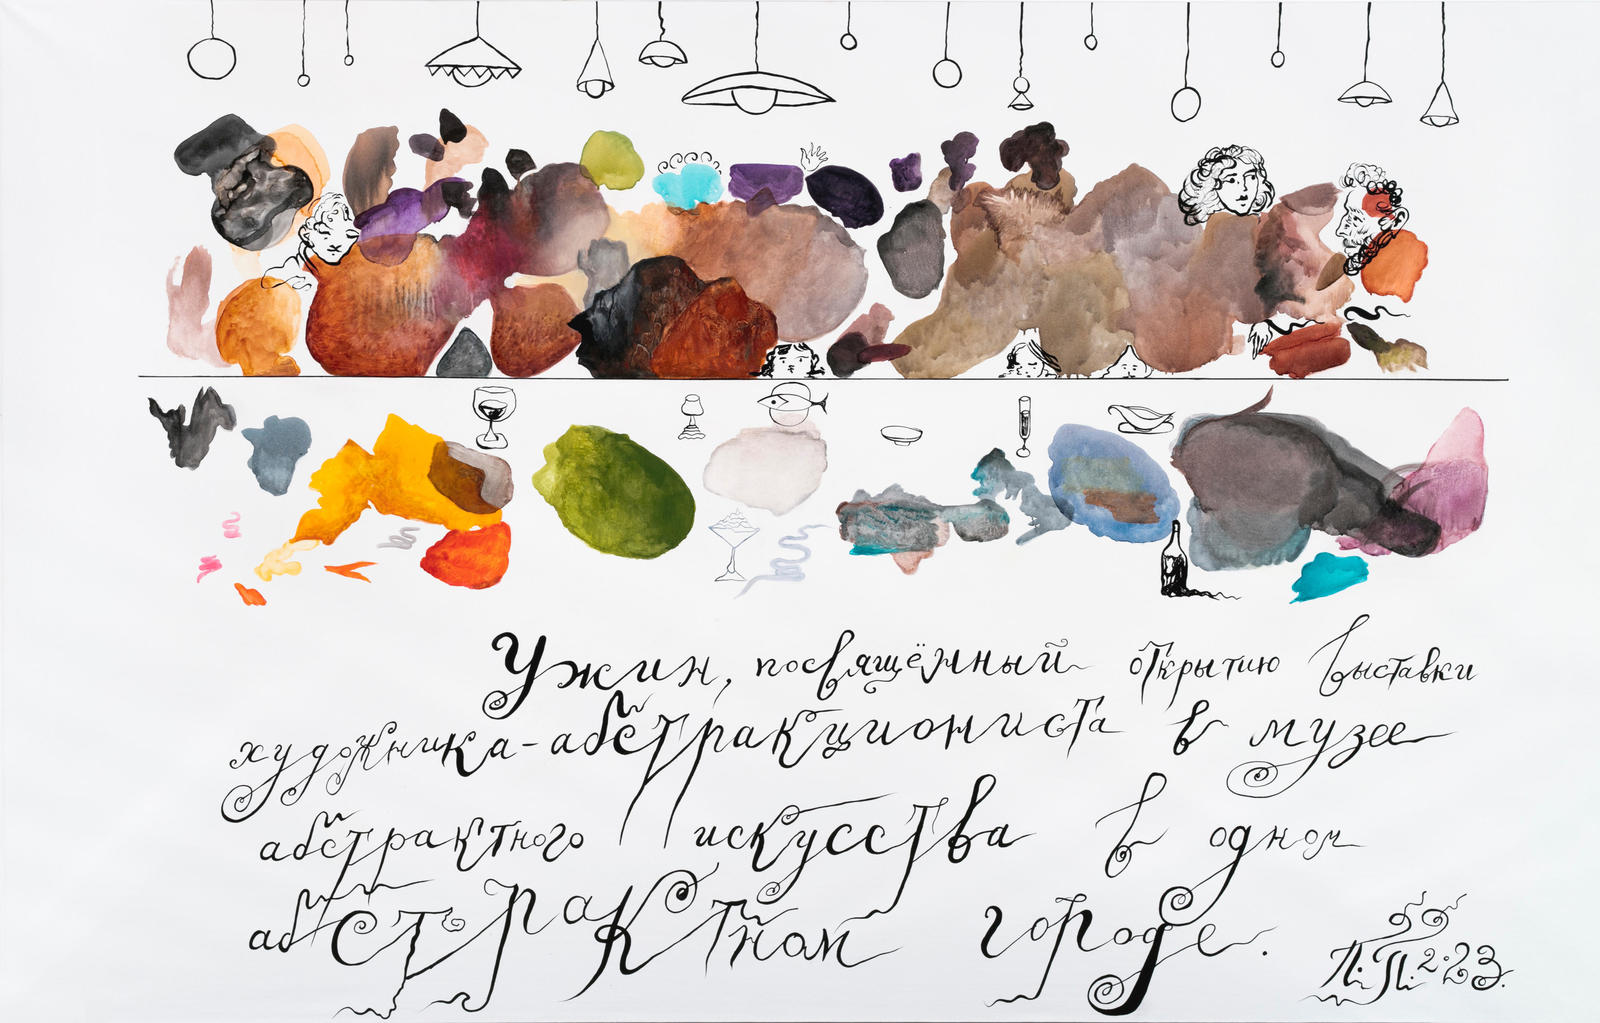 Ужин, посвящённый открытию выставки
художника-абстракциониста в музее
абстрактного искусства в одном
абстрактном городе.
П.П. 2.23.